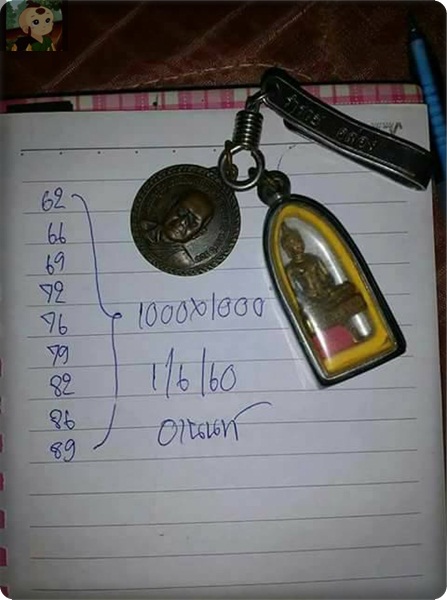 62
66
69
72
76
79
82
86
89
1000×1000
1/6/60
อานนท์